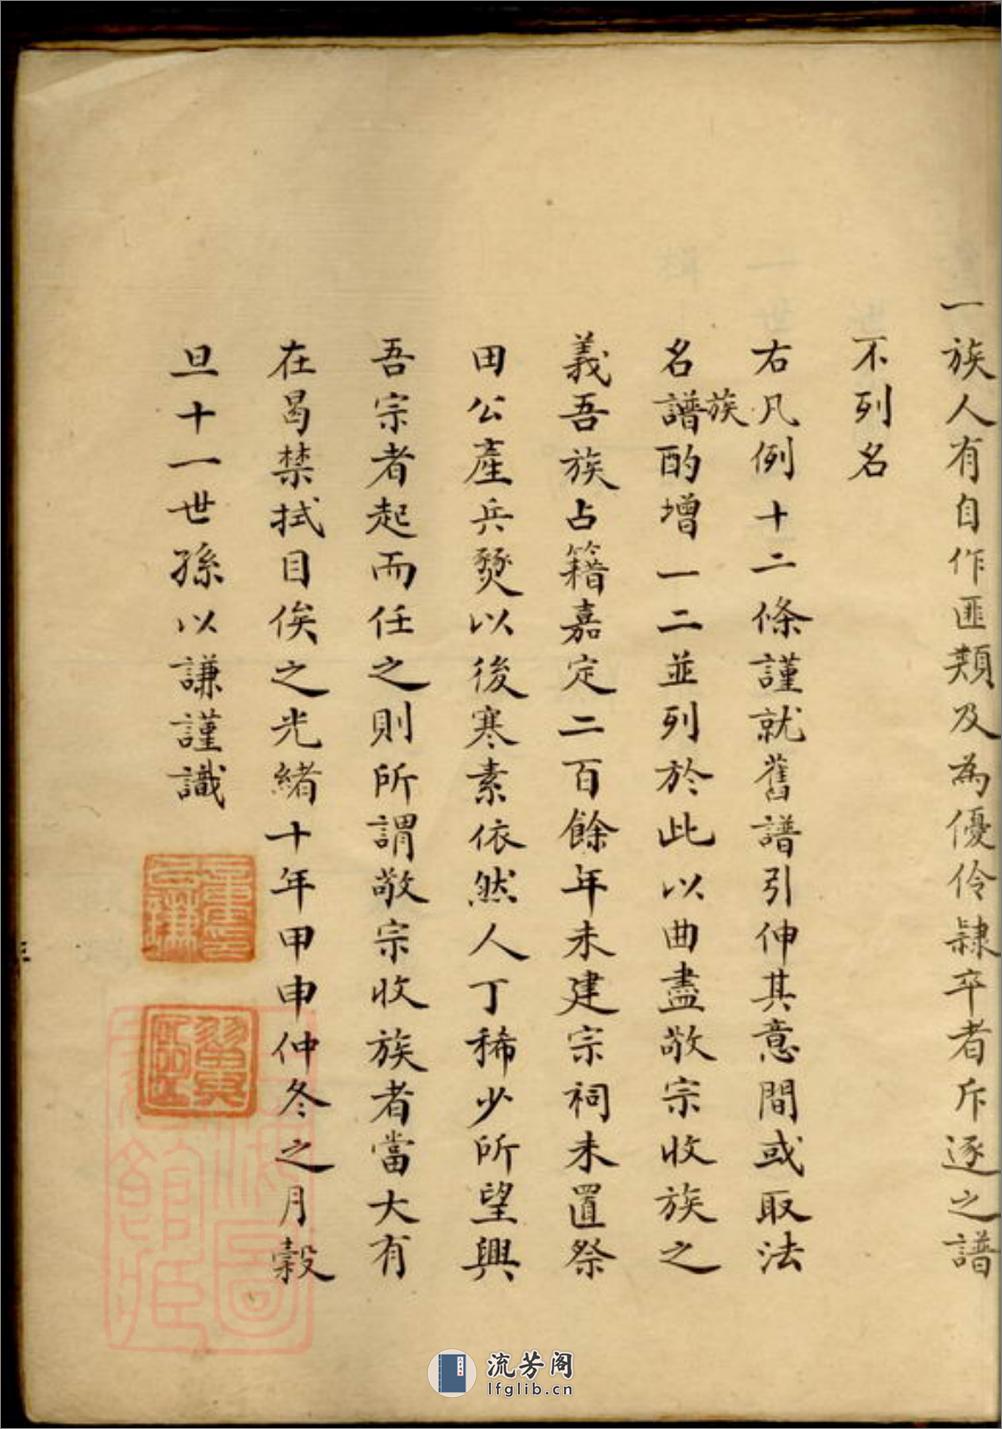 一族人有自作匪類及為優伶隷卒者斥逐之譜
不列名
右凡例十二條謹就舊譜引伸其意間或取法
名族譜酌增一二並列於此以曲盡敬宗收族之
義吾族占籍嘉定二百餘年未建宗祠未置祭
田公產兵燹以後寒素依然人丁稀少所望興
吾宗者起而任之則所謂敬宗收族者當大有
在曷禁拭目俟之光緒十年甲申仲冬之月穀
旦十一世孫以謙謹識
流芳阁
lfglib.cn